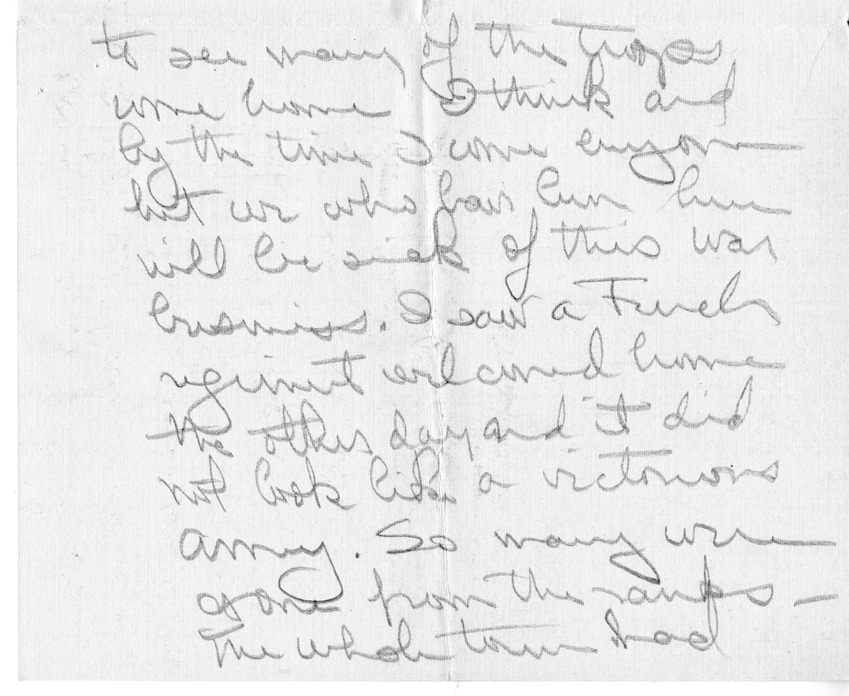 to see many of the troops
come home I think and
by the time I come everyone
but we who have been here
will be sick of this war
business. I saw a French
regiment welcomed home
the other day and it did
not look like a victorious
army. So many were
gone from the ranks —
The whole town had